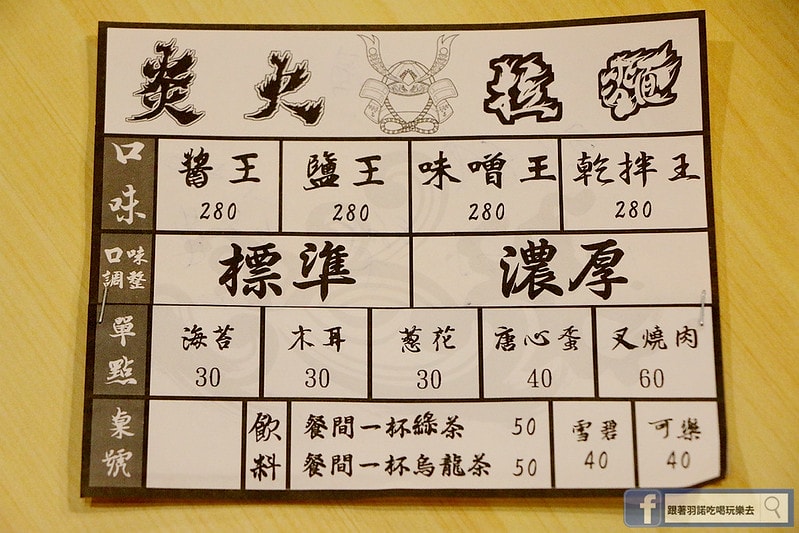 炎火拉麵
口味 醬王 280 鹽王 280 味噌王 280 乾拌王 280
口味調整 標準 濃厚
單點 海苔 30 木耳 30 蔥花 30 唐心蛋 40 叉燒肉 60
桌號 飲料 餐間一杯綠茶 50 雪碧 40 可樂 40
餐間一杯烏龍茶 50
跟著羽諾吃喝玩樂去